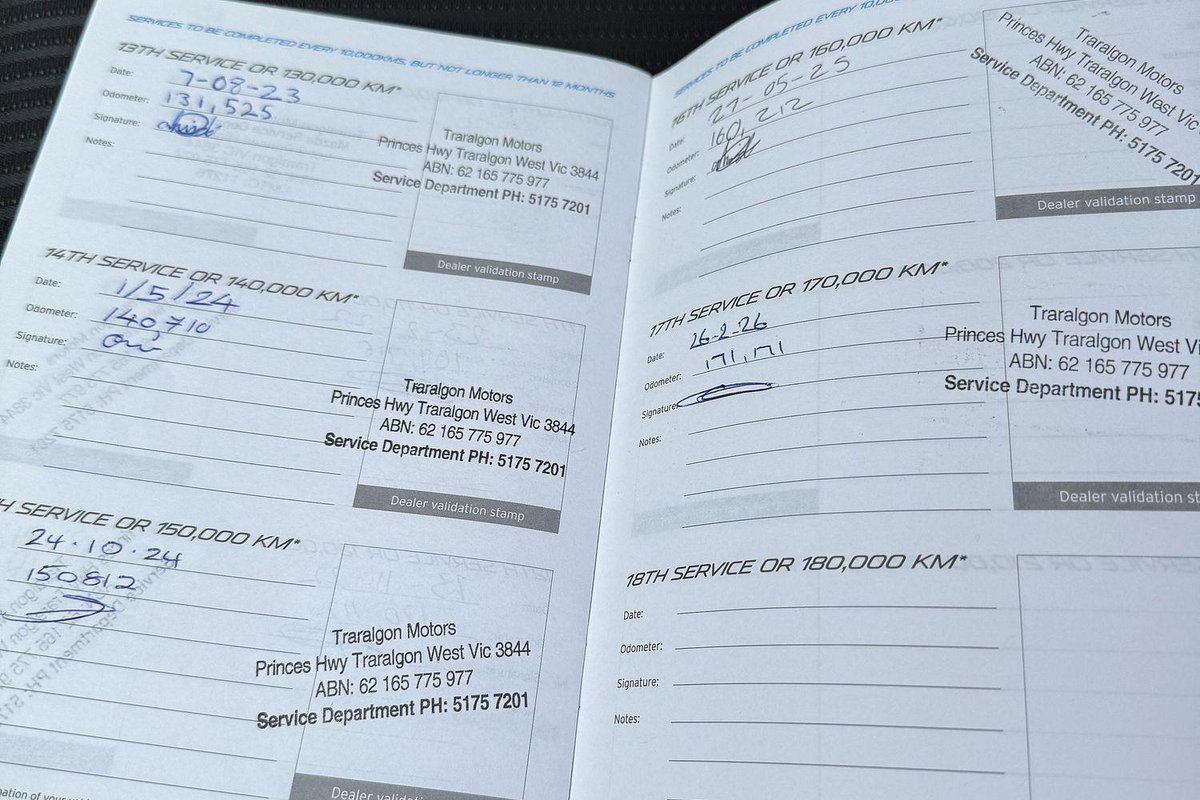 SERVICES TO BE COMPLETED EVERY 10,000KMS, BUT NOT LONGER THAN 12 MONTHS
13TH SERVICE OR 130,000 KM*
Date: 7-08-23
Odometer: 131,525
Signature:
Notes:
Traralgon Motors
Princes Hwy Traralgon West Vic 3844
ABN: 62 165 775 977
Service Department PH: 5175 7201
Dealer validation stamp
14TH SERVICE OR 140,000 KM*
Date: 1/5/24
Odometer: 140,710
Signature:
Notes:
Traralgon Motors
Princes Hwy Traralgon West Vic 3844
ABN: 62 165 775 977
Service Department PH: 5175 7201
Dealer validation stamp
TH SERVICE OR 150,000 KM*
24.10.24
150812
Traralgon Motors
Princes Hwy Traralgon West Vic 3844
ABN: 62 165 775 977
Service Department PH: 5175 7201
Dealer validat
SERVICES TO BE COMPLETED EVERY 10,00
16TH SERVICE OR 160,000 KM*
Date: 27-05-25
Odometer: 160,212
Signature:
Notes:
Traralgon Motors
Princes Hwy Traralgon West Vic
ABN: 62 165 775 977
Service Department PH: 5175 7201
Dealer validation stamp
17TH SERVICE OR 170,000 KM*
Date: 26-2-26
Odometer: 171,171
Signature:
Notes:
Traralgon Motors
Princes Hwy Traralgon West Vi
ABN: 62 165 775 977
Service Department PH: 5175
Dealer validation st
18TH SERVICE OR 180,000 KM*
Date:
Odometer:
Signature:
Notes: